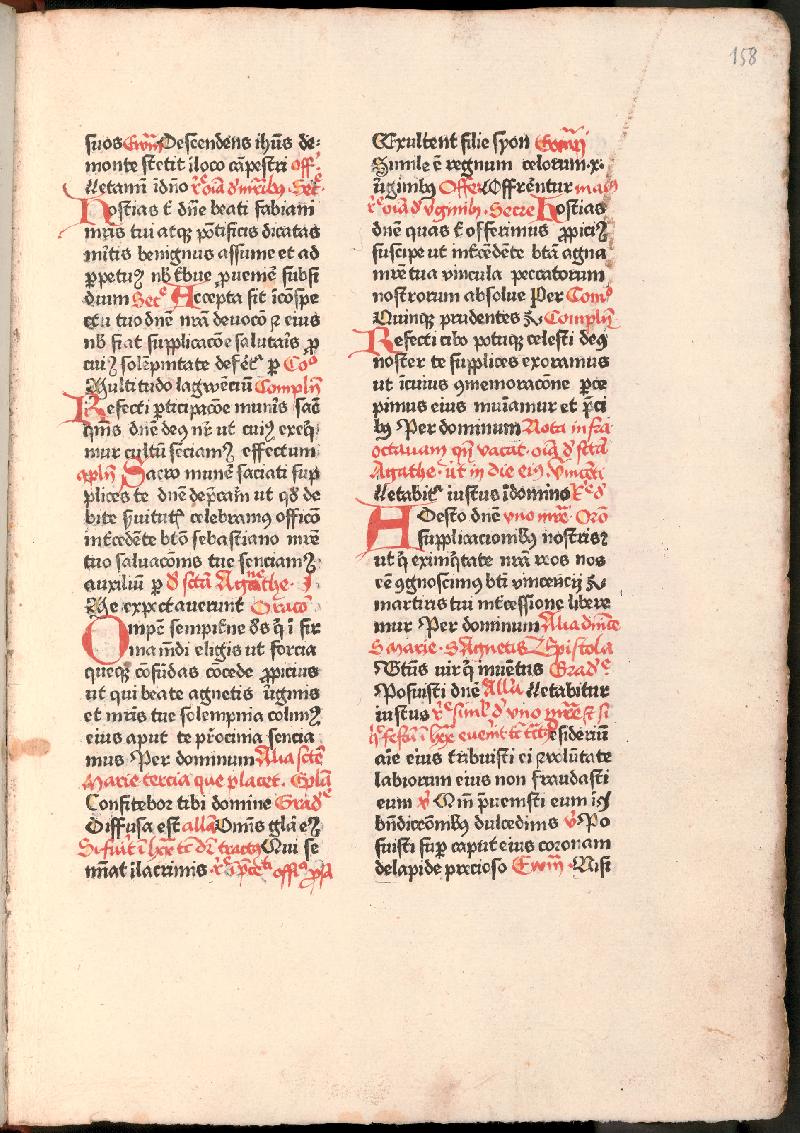 158
suos Ewm̄ Descendens ihūs de-
monte stetit ī loco cāpestri off̄
Letamī ī dn̄o ꝶ oīa d' mr̄ibꝰ Secᵉ
Hostias t̄ dn̄e beati fabiani
mr̄is tui atqꝫ pōtificis dicatas
mītis benignus assume et ad
ꝑpetuꝫ nb̄ t̄bue ꝓuenīē subsi
dium Secᵉ Accepta sit ī cōspe
ctu tuo dn̄e nr̄a deuocō ⁊ eius
nb̄ fiat supplicacōe salutaīs ꝓ
cuiꝫ solēpnitate defert̄ ꝑ Coᵒ
Multitudo lagwēciū Complīn
Refecti ꝑticipacōe munīs sac̄
qm̄s dn̄e deꝰ nr̄ ut cuiꝫ exeq̄
mur cultū seciamꝫ effectum
9plīn Sacro munē saciati sup
plices te dn̄e dep̄cam̄ ut qd' de
bite s'uitutꝭ celebramꝰ officō
int̄cedēte btō sebastiano mr̄e
tuo saluacōnis tue senciamꝫ
auxiliū ꝑ d' sctā Agnethe. J
Me expectauerunt Oracō
Omp̄e sempit̄ne ds̄ q̄ ī fir
ma mūdi eligis ut forcia
queqꝫ cōfūdas cōcede ꝓpicius
ut qui beate agnetis ūginis
et mr̄is tue solempnia colimꝫ
eius aput te pr̄ocinia sencia
mus Per dominum Alia sctē
Marie tercia que placet. Epl̄a
Confitebor tibi domine Gradᵉ
Diffusa est all̄a Om̄is glā eꝫ
Si fu'it ī lxx tc̄ dr̄ tractꝰ Qui se
mīat ī lacrimis ꝟ offᵃ p̄sa
Exultent filie syon Ewm̄
Simile ē regnum celorum ·x·
ūginibꝫ Offer Offrentur maiꝫ
ꝶ oīa d' v̄ginibꝫ. Secre Hostias
dn̄e quas t̄ offerimus ꝓpiciꝫ
suscipe ut int̄cēdēte btā agna
mr̄e tua vincula peccatorum
nostrorum absolue Per Comᵒ
Quinqꝫ prudentes ⁊c̄. Complīn
Refecti cibo potuqꝫ celesti deꝰ
noster te supplices exoramus
ut ī cuius ꝯmemoracōne ꝑce
pimus eius muiamur et p̄ci
bꝫ Per dominum Nota infra
octauam qn̄ vacat. oīa d' sctā
Agathe. ut in die eiꝰ Vincēti
Letabitꝭ iustus ī domino ꝶ d'
Adesto dn̄e vno mr̄e Orō
supplicacionibꝫ nostrisꝫ
ut q̄ ex iniq̄tate nr̄a reos nos
eē ꝯgnoscimꝰ bti vincencij ⁊c̄
martiris tui int̄cessione libere
mur Per dominum Alia dnīce
S marie. S Agnetis Epistola
Btūs uir q̄ inuētus Gradᵉ
Posuisti dn̄e All̄a Letabitur
iustus ꝟ simlr̄ d' vno mr̄e S; si
h' festū ī lxx euen'it tc̄ tctꝰ Desideriū
aīe eius tribuisti ei ⁊ volūtate
labiorum eius non fraudasti
eum ꝟ Qm̄ p̄uenisti eum in
bn̄diccōnibꝫ dulcedinis ꝟ Po
suisti sup caput eius coronam
de lapide precioso Ewm̄ Nisi